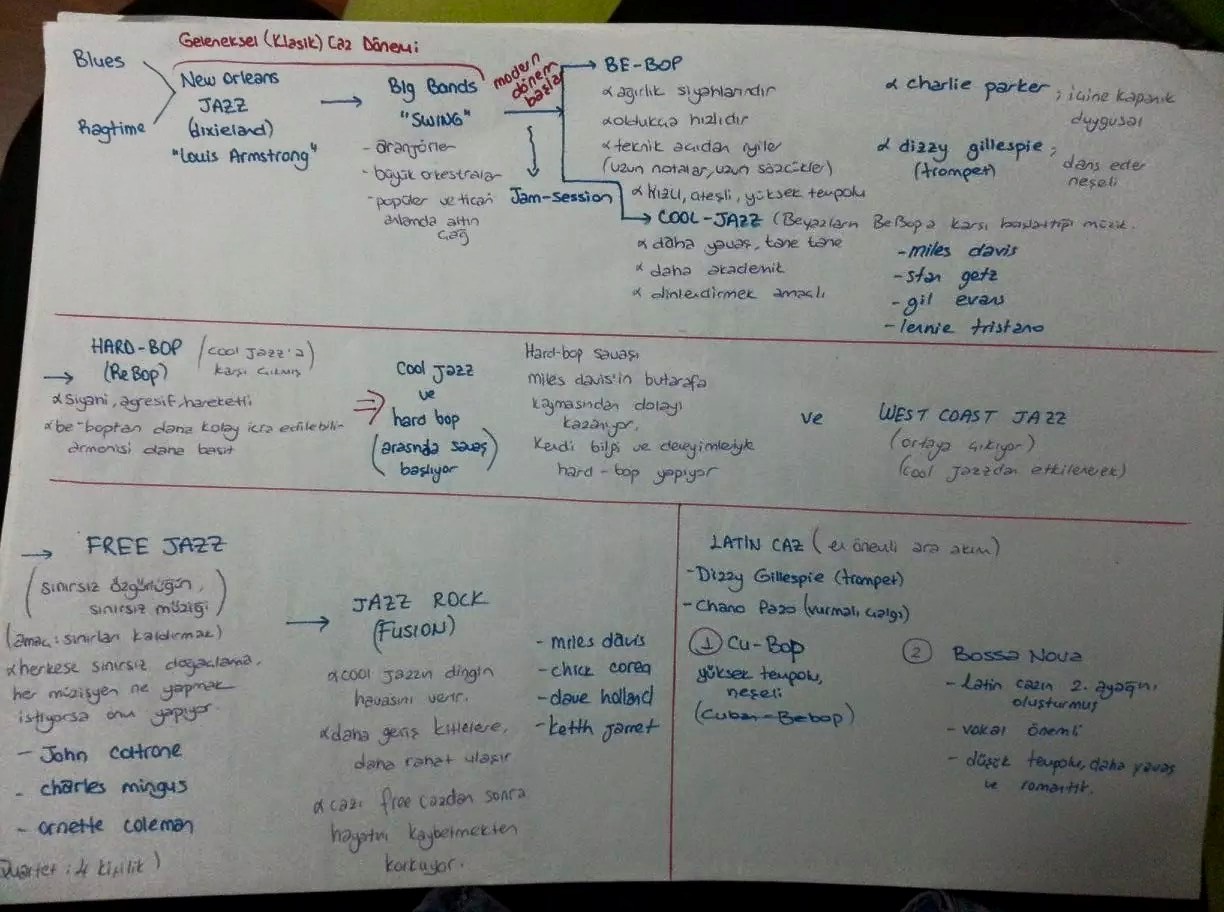 Geleneksel (Klasik) Caz Dönemi
Blues
Ragtime
New Orleans
JAZZ
(dixieland)
"Louis Armstrong"
Big Bands
"SWING"
- aranjörler
- büyük orkestralar
- popüler ve ticari
anlamda altın
çağ
modern
dönem
başlar
Jam-session
BE-BOP
α ağırlık siyahlarındır
α oldukça hızlıdır
α teknik açıdan iyiler
(uzun notalar, uzun sözcükler)
α Hızlı, ateşli, yüksek tempolu
α charlie parker ; içine kapanık
duygusal
α dizzy gillespie ;
(trompet)
dans eder
neşeli
COOL-JAZZ (Beyazların BeBop a karşı başlattığı müzik.
α daha yavaş, tane tane
α daha akademik
α dinlendirmek amaçlı
- miles davis
- stan getz
- gil evans
- lennie tristano
HARD-BOP
(ReBop)
(cool jazz'a
karşı çıkmış)
α Siyahi, agresif, hareketli
α be-boptan daha kolay icra edilebilir
armonisi daha basit
Cool jazz
ve
hard bop
(arasında savaş
başlıyor)
Hard-bop savaşı
miles davis'in bu tarafa
kaymasından dolayı
kazanıyor.
Kendi bilgi ve deneyimleriyle
hard-bop yapıyor
ve
WEST COAST JAZZ
(ortaya çıkıyor)
(cool jazzdan etkilenerek)
FREE JAZZ
(sınırsız özgürlüğün,
sınırsız müziği)
(amaç: sınırları kaldırmak)
α herkese sınırsız doğaçlama.
her müzisyen ne yapmak
istiyorsa onu yapıyor.
- John coltrone
- charles mingus
- ornette coleman
Quartet : 4 kişilik)
JAZZ ROCK
(FUSION)
α cool jazzın dingin
havasını verir.
α daha geniş kitlelere,
daha rahat ulaşır
α cazı free cazdan sonra
hayatını kaybetmekten
korkuyor.
- miles davis
- chick corea
- dave holland
- keith jarret
LATİN CAZ (en önemli ara akım)
- Dizzy Gillespie (trompet)
- Chano Pozo (vurmalı çalgı)
1 Cu-Bop
yüksek tempolu,
neşeli
(Cuban-Bebop)
2 Bossa Nova
- Latin cazın 2. ayağını
oluşturmuş
- vokal önemli
- düşük tempolu, daha yavaş
ve romantik.